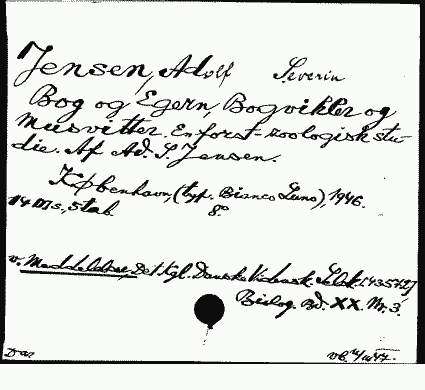 Jensen, Adolf Severin
Bog og Egern, Bogvikler og
Musvitter. En forst-zoologisk stu-
die. Af Ad. S. Jensen.
København, (typ. Bianco Luno), 1946.
8°
v. Meddelelser, Det Kgl. Danske Vidensk. Selsk. [43572]
Biolog. Bd. XX. Nr. 3.